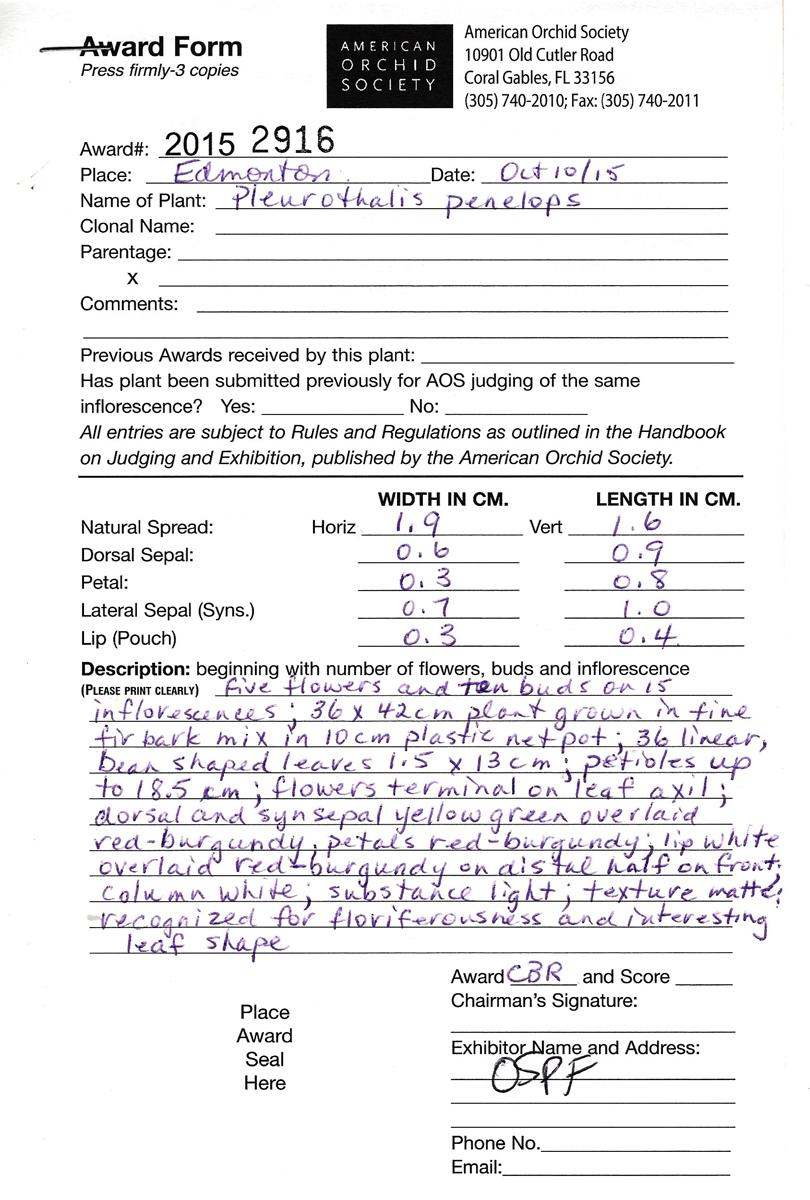 Award Form
Press firmly-3 copies
AMERICAN
ORCHID
SOCIETY
American Orchid Society
10901 Old Cutler Road
Coral Gables, FL 33156
(305) 740-2010; Fax: (305) 740-2011
Award#: 2015 2916
Place: Edmonton Date: Oct 10/15
Name of Plant: Pleurothalis penelops
Clonal Name:
Parentage:
X
Comments:
Previous Awards received by this plant:
Has plant been submitted previously for AOS judging of the same
inflorescence? Yes: No:
All entries are subject to Rules and Regulations as outlined in the Handbook
on Judging and Exhibition, published by the American Orchid Society.
WIDTH IN CM. LENGTH IN CM.
Natural Spread: Horiz 1.9 Vert 1.6
Dorsal Sepal: 0.6 0.9
Petal: 0.3 0.8
Lateral Sepal (Syns.) 0.7 1.0
Lip (Pouch) 0.3 0.4
Description: beginning with number of flowers, buds and inflorescence
(PLEASE PRINT CLEARLY) five flowers and ten buds on 15
inflorescences; 36 x 42cm plant grown in fine
fir bark mix in 10cm plastic net pot; 36 linear,
bean shaped leaves 1.5 x 13 cm; petioles up
to 18.5 cm; flowers terminal on leaf axil;
dorsal and synsepal yellow green overlaid
red-burgundy, petals red-burgundy; lip white
overlaid red-burgundy on distal half on front;
column white; substance light; texture matte;
recognized for floriferousness and interesting
leaf shape
Award CBR and Score
Chairman's Signature:
Place
Award
Seal
Here
Exhibitor Name and Address:
OSPF
Phone No.
Email: